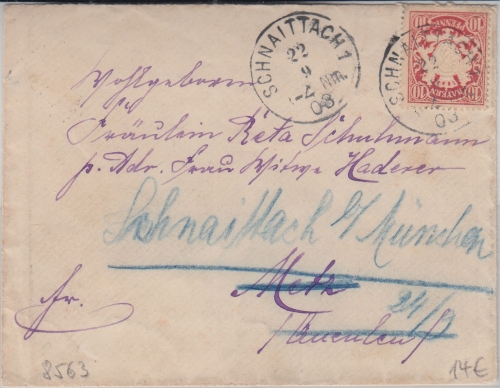 SCHNAITTACH 1
22
9
1-2 Nm.
03
SCHNAITTACH
22
03
10
BAYERN
Wohlgeboren
Fräulein Reta Schuhmann
p. Adr. Frau Witwe Haderer
Schnaittach b/ München
Metz
24/9
fr.
8563
14€